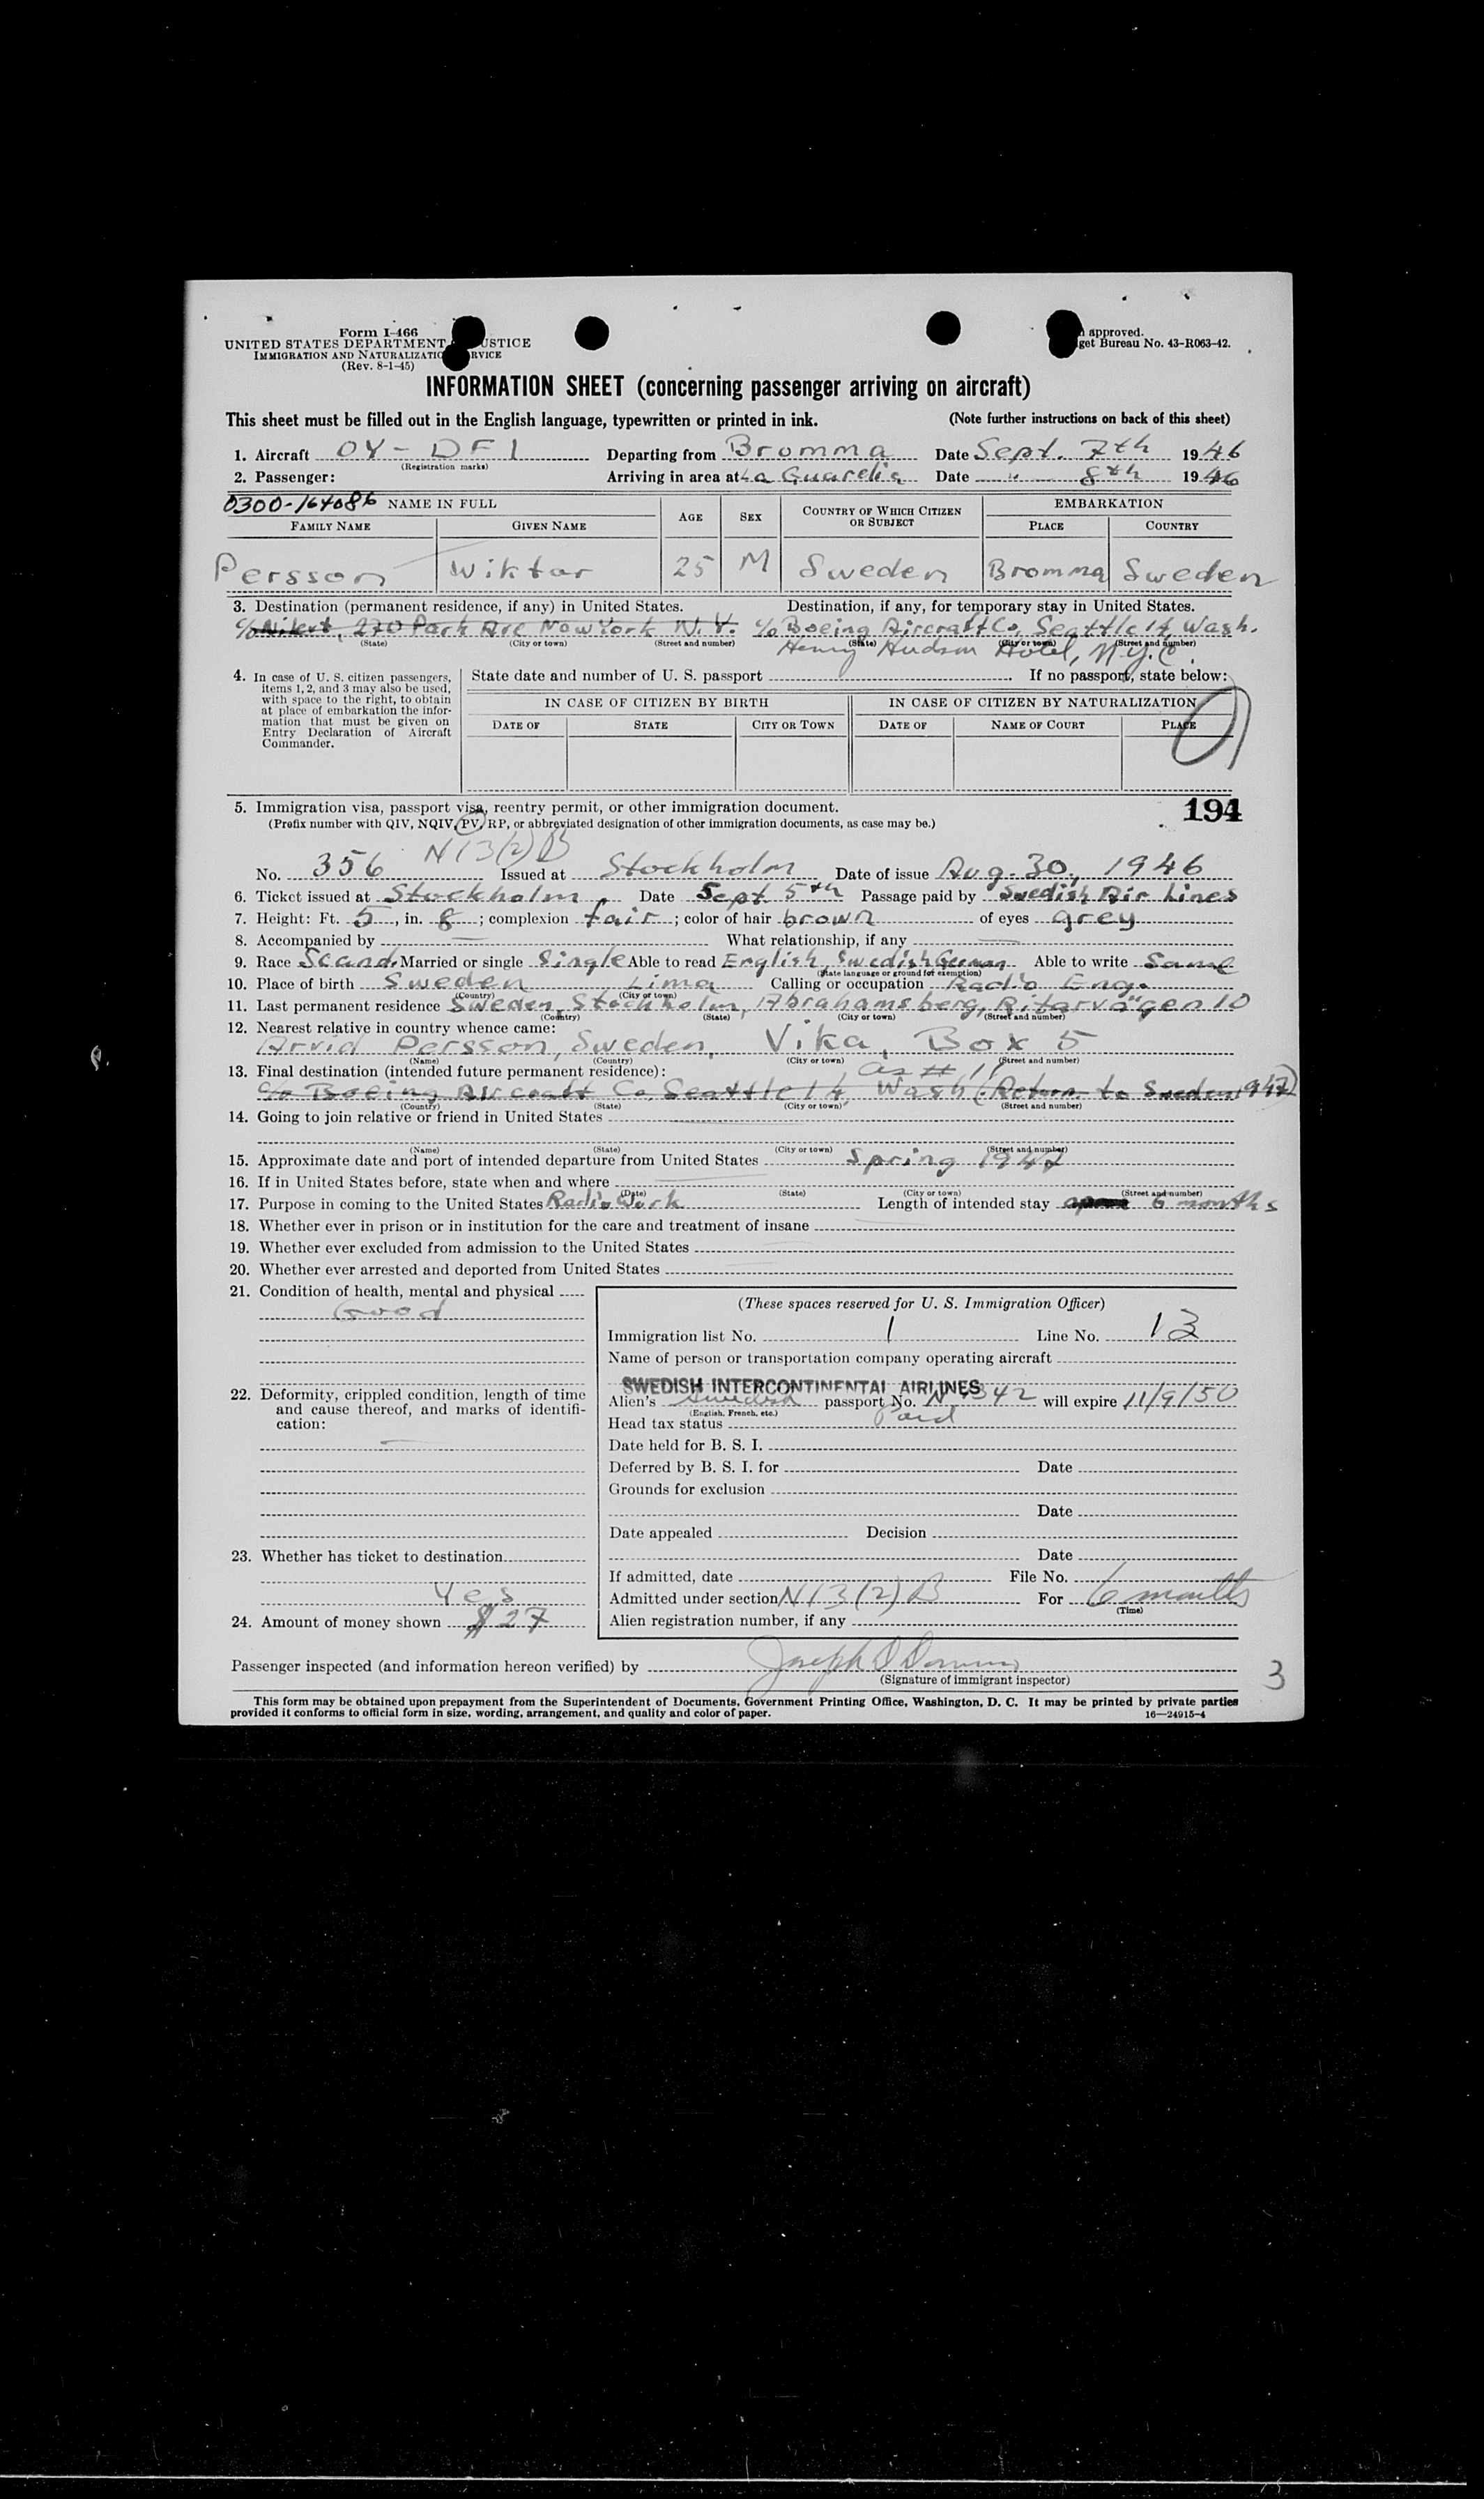 Form I-466
UNITED STATES DEPARTMENT USTICE
IMMIGRATION AND NATURALIZATIO RVICE
(Rev. 8-1-45)
approved.
get Bureau No. 43-R063-42.
INFORMATION SHEET (concerning passenger arriving on aircraft)
This sheet must be filled out in the English language, typewritten or printed in ink. (Note further instructions on back of this sheet)
1. Aircraft OY-DFI Departing from Bromma Date Sept. 7th 1946
(Registration marks)
2. Passenger: Arriving in area at La Guardia Date " 8th 1946
0300-164086 NAME IN FULL AGE SEX COUNTRY OF WHICH CITIZEN OR SUBJECT EMBARKATION
FAMILY NAME GIVEN NAME PLACE COUNTRY
Persson Wiktor 25 M Sweden Bromma Sweden
3. Destination (permanent residence, if any) in United States. Destination, if any, for temporary stay in United States.
c/o 270 Park Ave New York N.Y. c/o Boeing Aircraft Co, Seattle 14, Wash.
(State) (City or town) (Street and number) (State) (City or town) (Street and number)
Henry Hudson Hotel, N.Y.C.
4. In case of U. S. citizen passengers, items 1, 2, and 3 may also be used, with space to the right, to obtain at place of embarkation the information that must be given on Entry Declaration of Aircraft Commander.
State date and number of U. S. passport If no passport, state below:
IN CASE OF CITIZEN BY BIRTH IN CASE OF CITIZEN BY NATURALIZATION
DATE OF STATE CITY OR TOWN DATE OF NAME OF COURT PLACE
194
5. Immigration visa, passport visa, reentry permit, or other immigration document.
(Prefix number with QIV, NQIV, PV, RP, or abbreviated designation of other immigration documents, as case may be.)
N13(2)B
No. 356 Issued at Stockholm Date of issue Aug. 30, 1946
6. Ticket issued at Stockholm Date Sept 5th Passage paid by Swedish Air Lines
7. Height: Ft. 5, in. 8; complexion fair; color of hair brown of eyes grey
8. Accompanied by — What relationship, if any —
9. Race Scand. Married or single Single Able to read English, Swedish German Able to write Same
(State language or ground for exemption)
10. Place of birth Sweden Lima Calling or occupation Radio Eng.
(Country) (City or town)
11. Last permanent residence Sweden, Stockholm, Abrahamsberg, Ritarvägen 10
(Country) (State) (City or town) (Street and number)
12. Nearest relative in country whence came:
Arvid Persson, Sweden, Vika, Box 5
(Name) (Country) (City or town) (Street and number)
13. Final destination (intended future permanent residence): as # 11
c/o Boeing Aircraft Co Seattle 14, Wash (Return to Sweden 1947)
(Country) (State) (City or town) (Street and number)
14. Going to join relative or friend in United States
(Name) (State) (City or town) (Street and number)
15. Approximate date and port of intended departure from United States Spring 1947
16. If in United States before, state when and where
(Date) (State) (City or town) (Street and number)
17. Purpose in coming to the United States Radio Work Length of intended stay 6 months
18. Whether ever in prison or in institution for the care and treatment of insane
19. Whether ever excluded from admission to the United States
20. Whether ever arrested and deported from United States
21. Condition of health, mental and physical
Good
22. Deformity, crippled condition, length of time and cause thereof, and marks of identification:
—
23. Whether has ticket to destination
Yes
24. Amount of money shown $27
(These spaces reserved for U. S. Immigration Officer)
Immigration list No. 1 Line No. 13
Name of person or transportation company operating aircraft
SWEDISH INTERCONTINENTAL AIRLINES
Alien's Swedish passport No. 342 will expire 11/9/50
(English, French, etc.)
Head tax status Paid
Date held for B. S. I.
Deferred by B. S. I. for Date
Grounds for exclusion
Date
Date appealed Decision
Date
If admitted, date File No.
Admitted under section N13(2)B For 6 months
(Time)
Alien registration number, if any
Passenger inspected (and information hereon verified) by Joseph
(Signature of immigrant inspector)
3
This form may be obtained upon prepayment from the Superintendent of Documents, Government Printing Office, Washington, D. C. It may be printed by private parties
provided it conforms to official form in size, wording, arrangement, and quality and color of paper. 16—24915-4